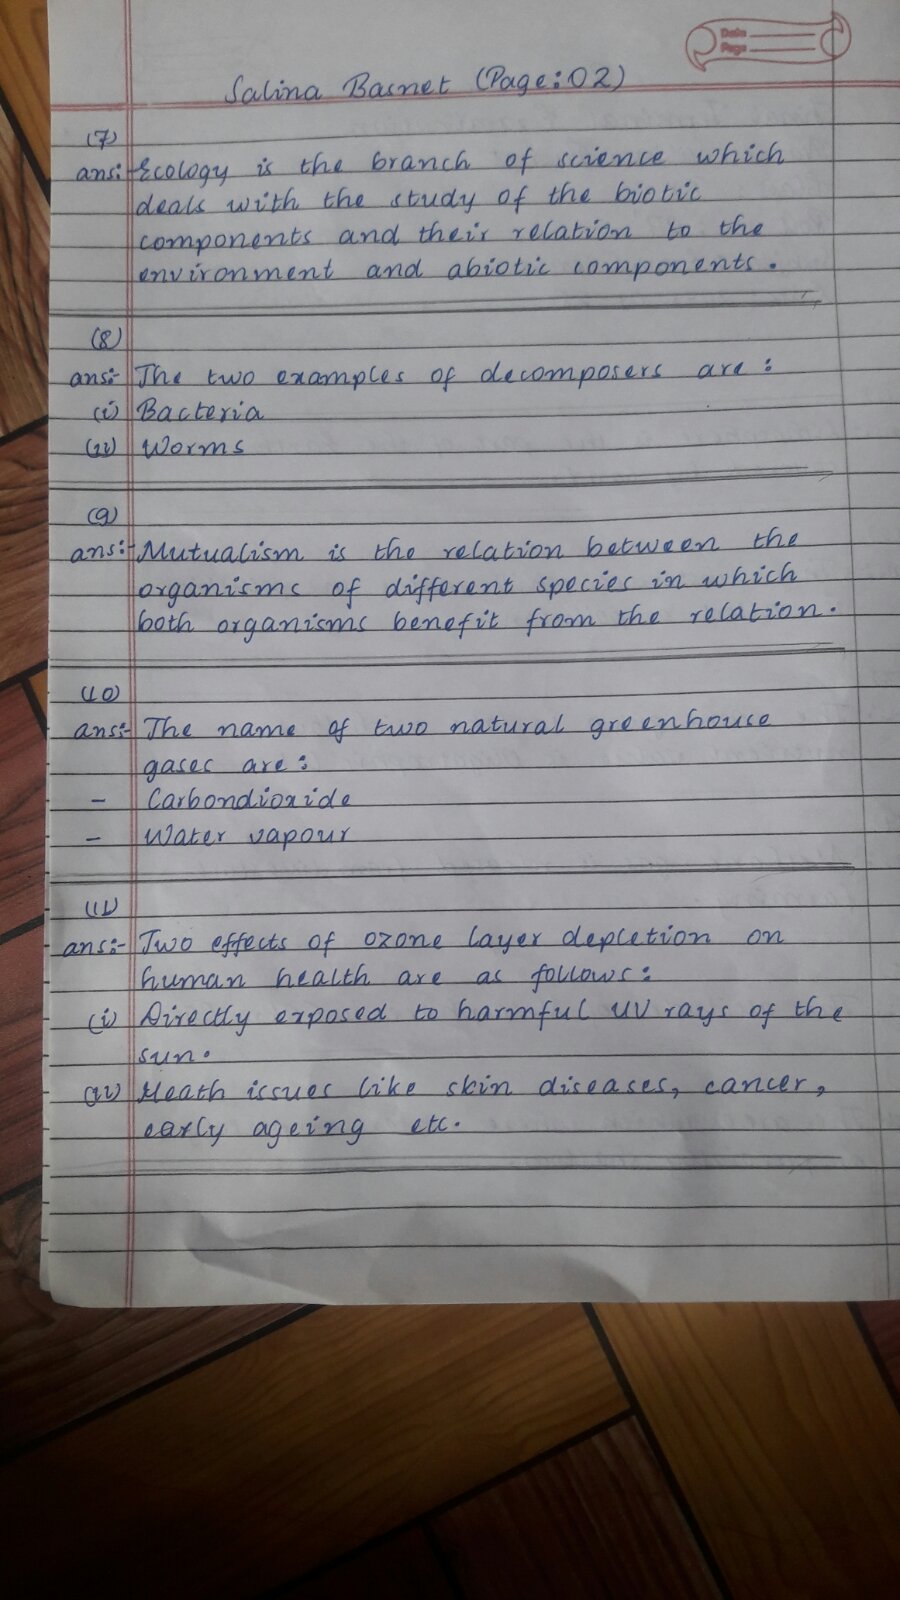 Date
Page
Salina Basnet (Page:02)
(7)
ans:- Ecology is the branch of science which
deals with the study of the biotic
components and their relation to the
environment and abiotic components.
(8)
ans:- The two examples of decomposers are:
(i) Bacteria
(ii) Worms
(9)
ans:- Mutualism is the relation between the
organisms of different species in which
both organisms benefit from the relation.
(10)
ans:- The name of two natural greenhouse
gases are:
- Carbondioxide
- Water vapour
(11)
ans:- Two effects of ozone layer depletion on
human health are as follows:
(i) Directly exposed to harmful UV rays of the
sun.
(ii) Heath issues like skin diseases, cancer,
early ageing etc.